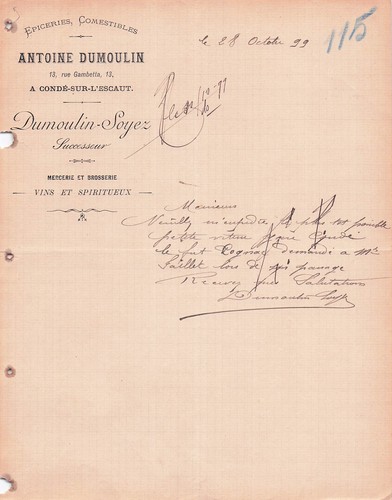 EPICERIES, COMESTIBLES
ANTOINE DUMOULIN
13, rue Gambetta, 13,
A CONDÉ-SUR-L'ESCAUT.
Dumoulin-Soyez
Successeur
MERCERIE ET BROSSERIE
VINS ET SPIRITUEUX
le 28 Octobre 99
115
Monsieur
Veuillez m'expédier le plus tôt possible
petite vitesse gare Condé
le fut Cognac demandé à Mr
Saillet lors de son passage
Recevez mes Salutations
Dumoulin Soyez